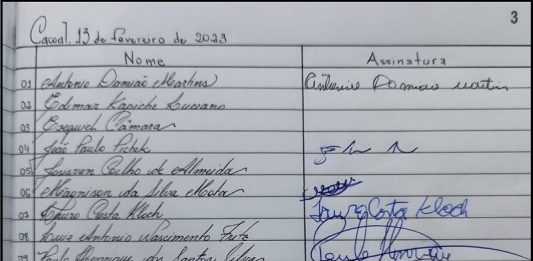 3
Cacoal, 13 de fevereiro de 2023
Nome Assinatura
01 Antonio Damião Martins Antonio Damiao Martin
02 Edimar Kapiche Luciano
03 Ezequiel Câmara
04 João Paulo Pichek
05 Coelho de Almeida
06 Magnison da Silva Mota
07 Lauro Costa Kloch Lauro Costa Kloch
08 Luiz Antonio Nascimento Fritz
09 Paulo Henrique dos Santos Silva Paulo Henrique